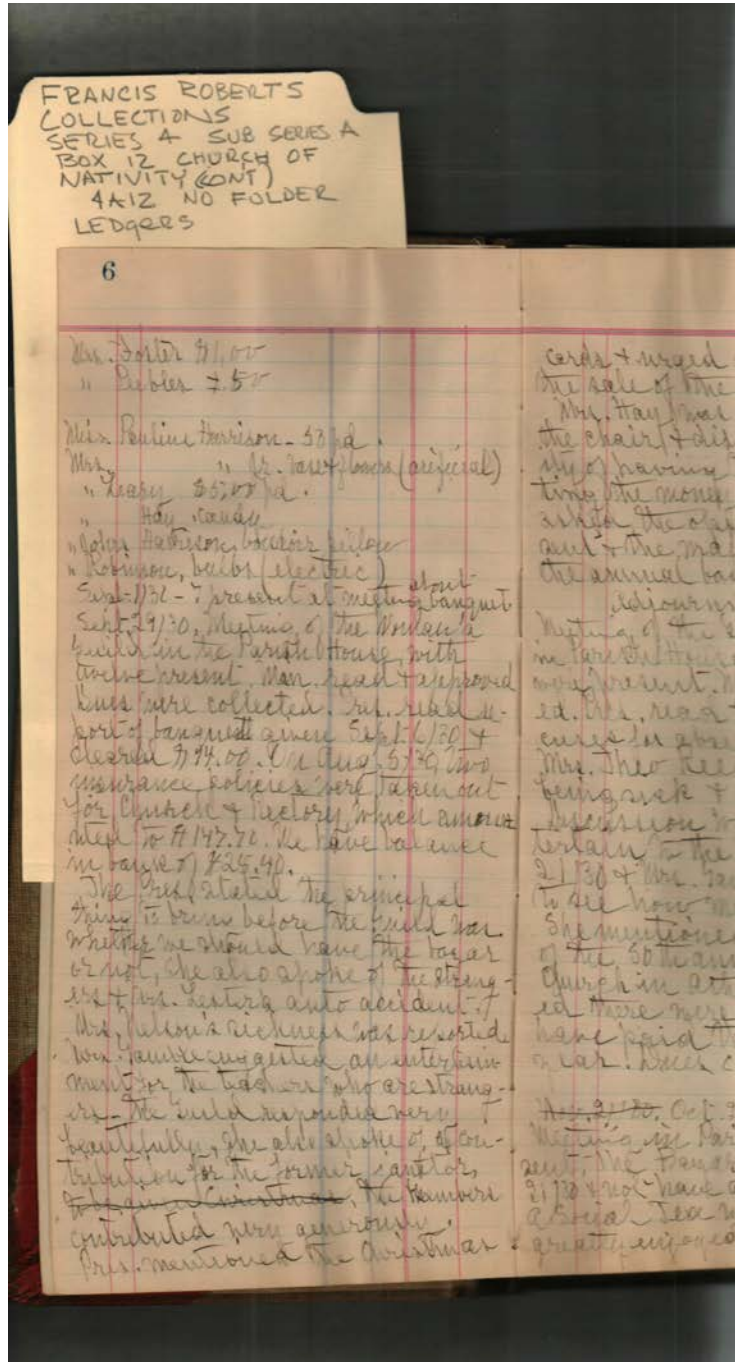 FRANCIS ROBERTS
COLLECTIONS
SERIES 4 SUB SERIES A
BOX 12 CHURCH OF
NATIVITY (CONT)
4A12 NO FOLDER
LEDgERS
6
Mrs. Foster $1.00
" Peebles
Miss Pauline Harrison - pd.
Mrs. " Jr. vase + flowers (artificial)
" Leary $5.00 pd.
" Hay candy
" John Harrison, boudoir pillow
" Robinson, bulbs (electric)
- 7 present at meeting about banquet
Sept. 29/30, Meeting of the Woman's
Guild in the Parish House, with
twelve present. Min. read + approved
Dues were collected. read re-
port of banquet given Sept. 16/30 +
cleared $94.00. On Aug. 5/30, two
insurance policies were taken out
for Church + Rectory which amoun
nted to $147.70. We have balance
in bank of $25.40.
The Pres. stated the principal
thing to bring before the Guild was
whether we should have the bazar
or not, she also spoke of the strang-
ers + Mrs. Lester's auto accident.
Mrs. Nelson's sickness was reported
Mrs. suggested an entertain
ment for the teachers who are strang-
ers - The Guild responded very
beautifully, she also spoke of a con-
tribution for the former janitor,
to be given Christmas, the members
contributed very generously.
Pres. mentioned the Christmas
cards + urged
the sale of the
Mrs. Hay was
the chair, + dis
sity of having
ting the money
ask for the
and + the
the annual
adjourn
Meeting of the
in Parish House
were present.
ed. Pres. read
cuses for abse
Mrs. Theo
being sick +
discussion
tertain the
21/30 + Mrs.
to see how
She mentioned
of the 50th ann
Church in
ed there were
have paid
year. Dues c
Nov. 21/30. Oct.
Meeting in Par
sent, the Bazar
21/30 + not have a
a Social Tea
greatly enjoyed